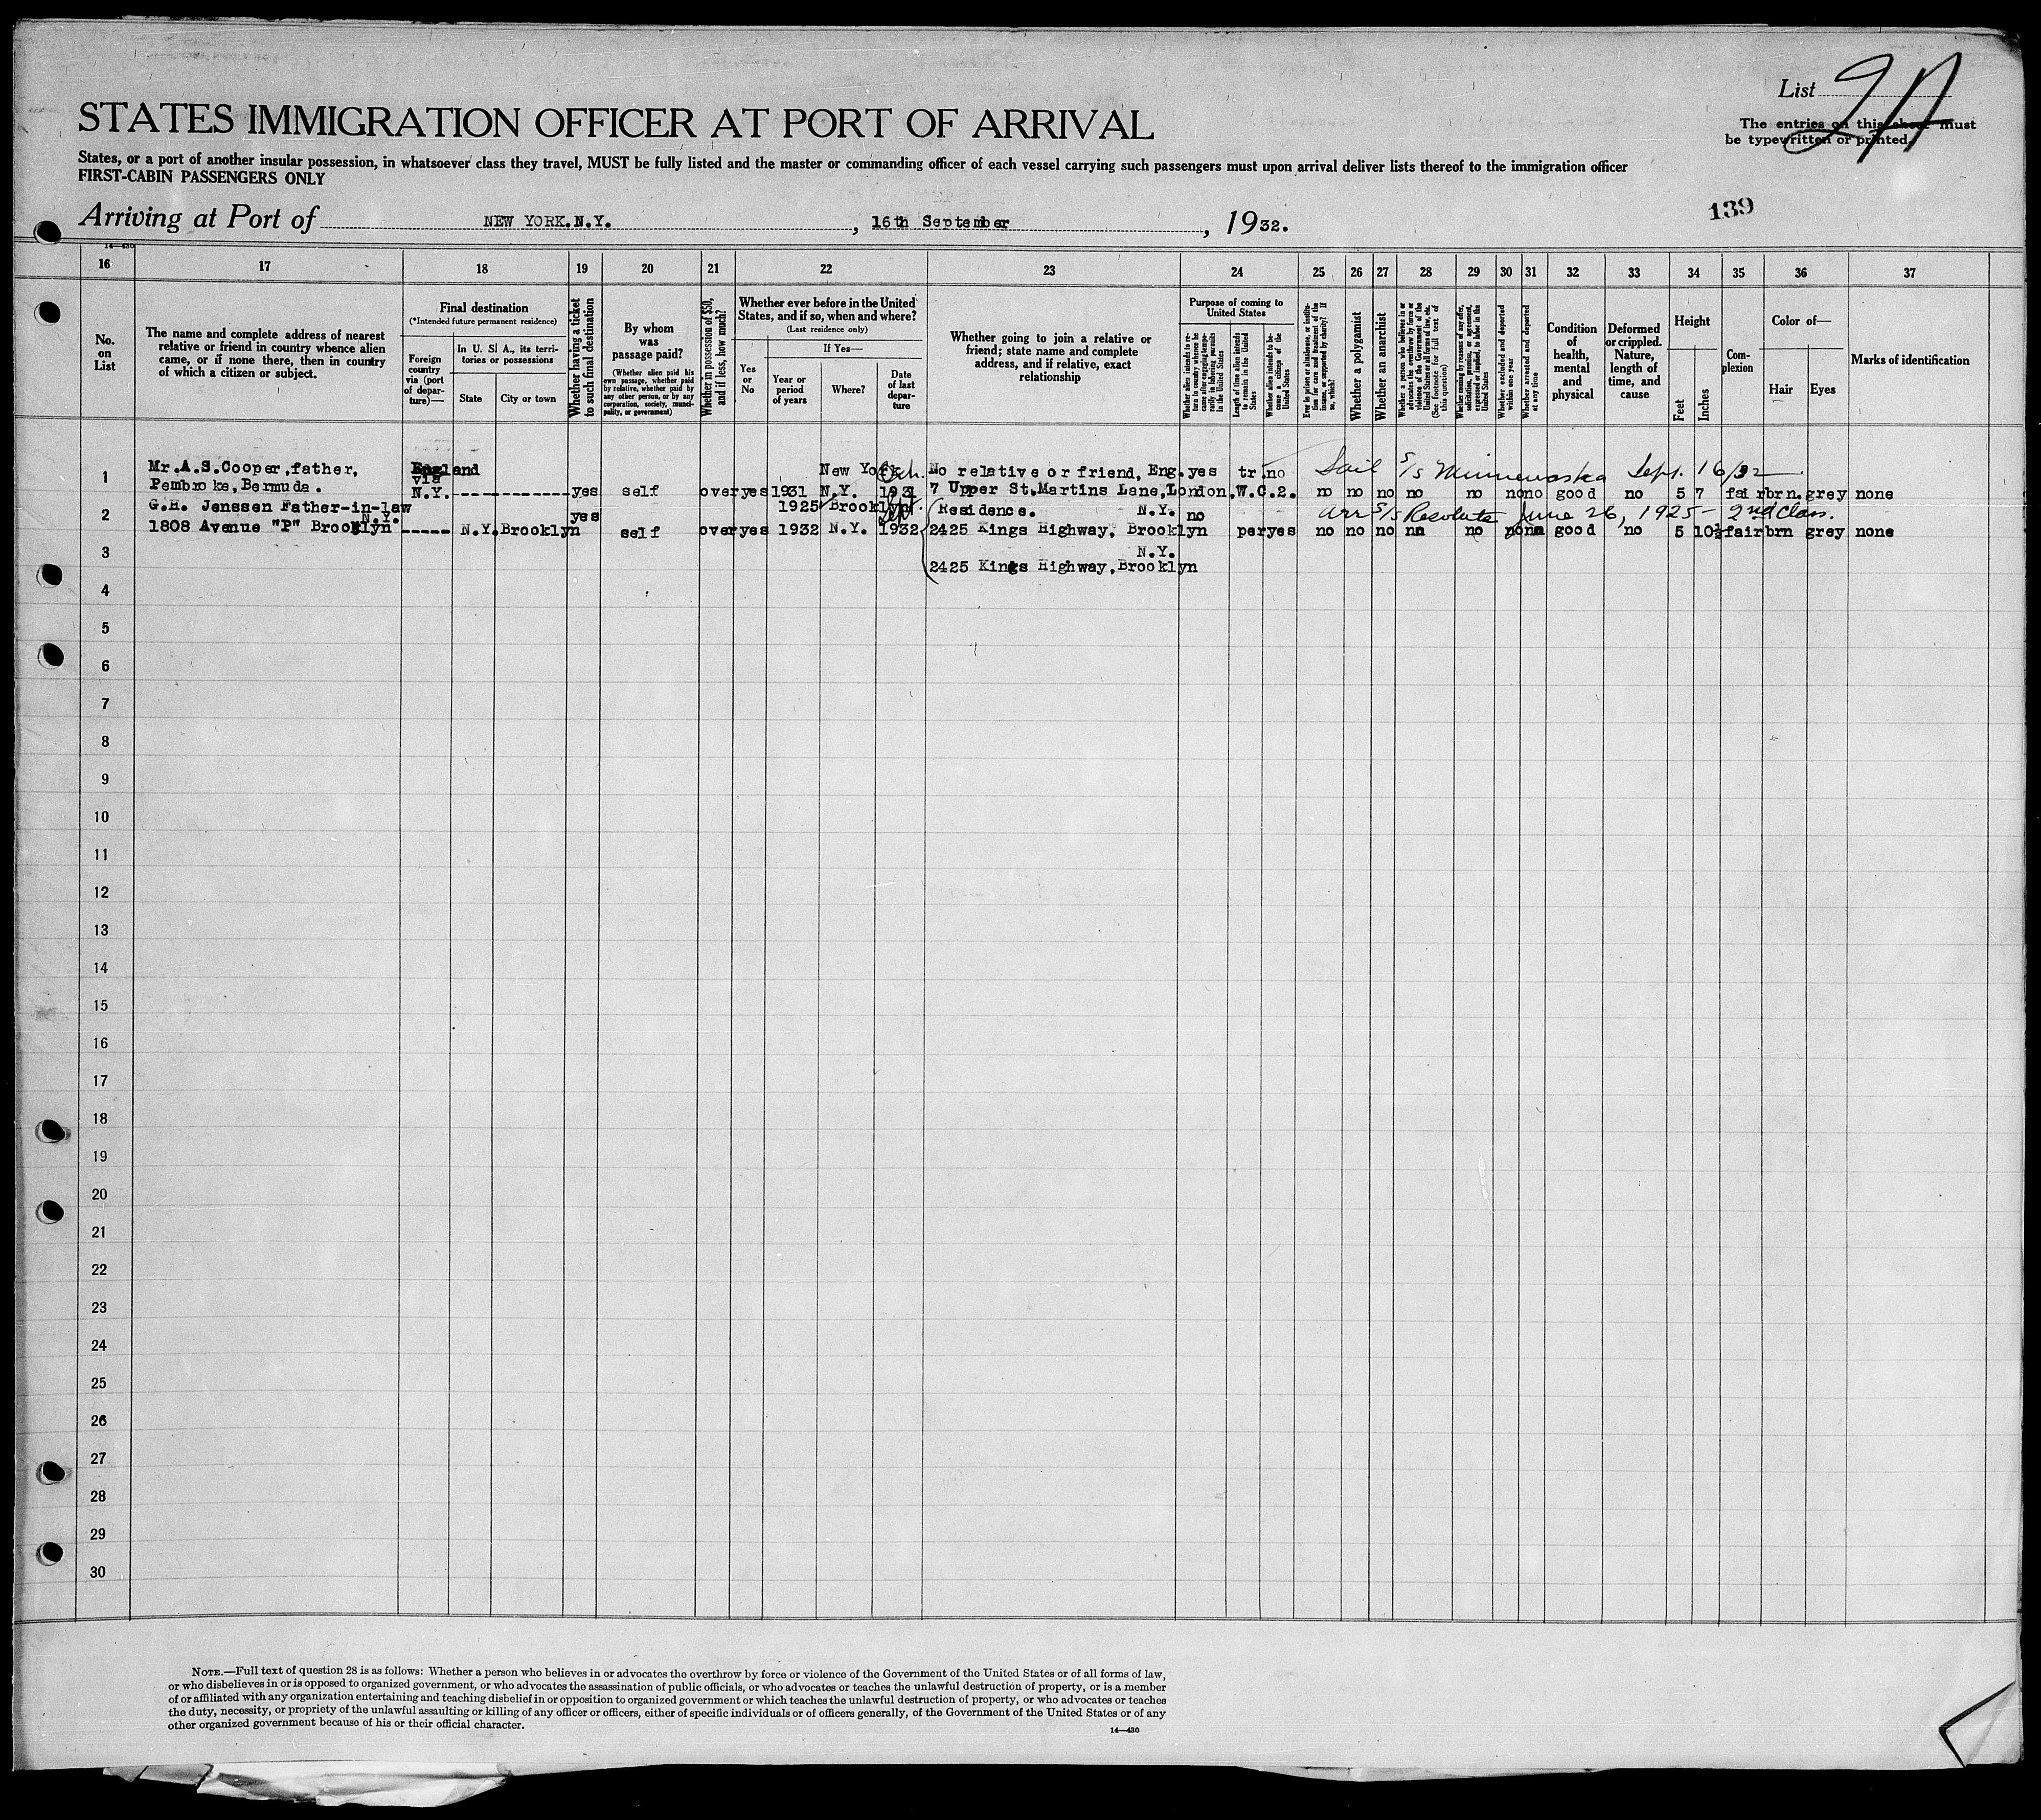 List 2A
STATES IMMIGRATION OFFICER AT PORT OF ARRIVAL
The entries on this sheet must
be typewritten or printed.
States, or a port of another insular possession, in whatsoever class they travel, MUST be fully listed and the master or commanding officer of each vessel carrying such passengers must upon arrival deliver lists thereof to the immigration officer
FIRST-CABIN PASSENGERS ONLY
139
Arriving at Port of NEW YORK.N.Y. , 16th September , 1932.
14—430
16 17 18 19 20 21 22 23 24 25 26 27 28 29 30 31 32 33 34 35 36 37
No.
on
List
The name and complete address of nearest
relative or friend in country whence alien
came, or if none there, then in country
of which a citizen or subject.
Final destination
(*Intended future permanent residence)
Foreign
country
via (port
of depar-
ture)—
In U. S. A., its terri-
tories or possessions
State
City or town
Whether having a ticket
to such final destination
By whom
was
passage paid?
(Whether alien paid his
own passage, whether paid
by relative, whether paid by
any other person, or by any
corporation, society, munici-
pality, or government)
Whether in possession of $50,
and if less, how much?
Whether ever before in the United
States, and if so, when and where?
(Last residence only)
Yes
or
No
If Yes—
Year or
period
of years
Where?
Date
of last
depar-
ture
Whether going to join a relative or
friend; state name and complete
address, and if relative, exact
relationship
Purpose of coming to
United States
Whether alien intends to re-
turn to country whence he
came after engaging tempo-
rarily in laboring pursuits
in the United States
Length of time alien intends
to remain in the United
States
Whether alien intends to be-
come a citizen of the
United States
Ever in prison or almshouse, or institu-
tion for care and treatment of the
insane, or supported by charity? If
so, which?
Whether a polygamist
Whether an anarchist
Whether a person who believes in or
advocates the overthrow by force or
violence of the Government of the
United States or all forms of law, etc.
(See footnote for full text of
this question)
Whether coming by reason of any offer,
solicitation, promise, or agreement,
expressed or implied, to labor in the
United States
Whether excluded and deported
within one year
Whether arrested and deported
at any time
Condition
of
health,
mental
and
physical
Deformed
or crippled.
Nature,
length of
time, and
cause
Height
Feet
Inches
Com-
plexion
Color of—
Hair
Eyes
Marks of identification
Mr.A.S.Cooper,father, England New York No relative or friend, Eng. yes tr. no Sail S/S Minnewaska Sept. 16/32
1 Pembroke, Bermuda. via N.Y. yes self over yes 1931 N.Y. 1931 7 Upper St.Martins Lane,London,W.C.2. no no no no no no no good no 5 7 fair brn. grey none
2 G.H. Jenssen Father-in-law yes 1925 Brooklyn Residence. N.Y. no Arr S/S Resolute June 26, 1925 - 2nd Class.
1808 Avenue "P" Brooklyn N.Y. N.Y. Brooklyn self over yes 1932 N.Y. 1932 2425 Kings Highway, Brooklyn per yes no no no no no no no good no 5 10½ fair brn grey none
3 N.Y.
2425 Kings Highway, Brooklyn
4
5
6
7
8
9
10
11
12
13
14
15
16
17
18
19
20
21
22
23
24
25
26
27
28
29
30
NOTE.—Full text of question 28 is as follows: Whether a person who believes in or advocates the overthrow by force or violence of the Government of the United States or of all forms of law,
or who disbelieves in or is opposed to organized government, or who advocates the assassination of public officials, or who advocates or teaches the unlawful destruction of property, or is a member
of or affiliated with any organization entertaining and teaching disbelief in or opposition to organized government or which teaches the unlawful destruction of property, or who advocates or teaches
the duty, necessity, or propriety of the unlawful assaulting or killing of any officer or officers, either of specific individuals or of officers generally, of the Government of the United States or of any
other organized government because of his or their official character.
14—430